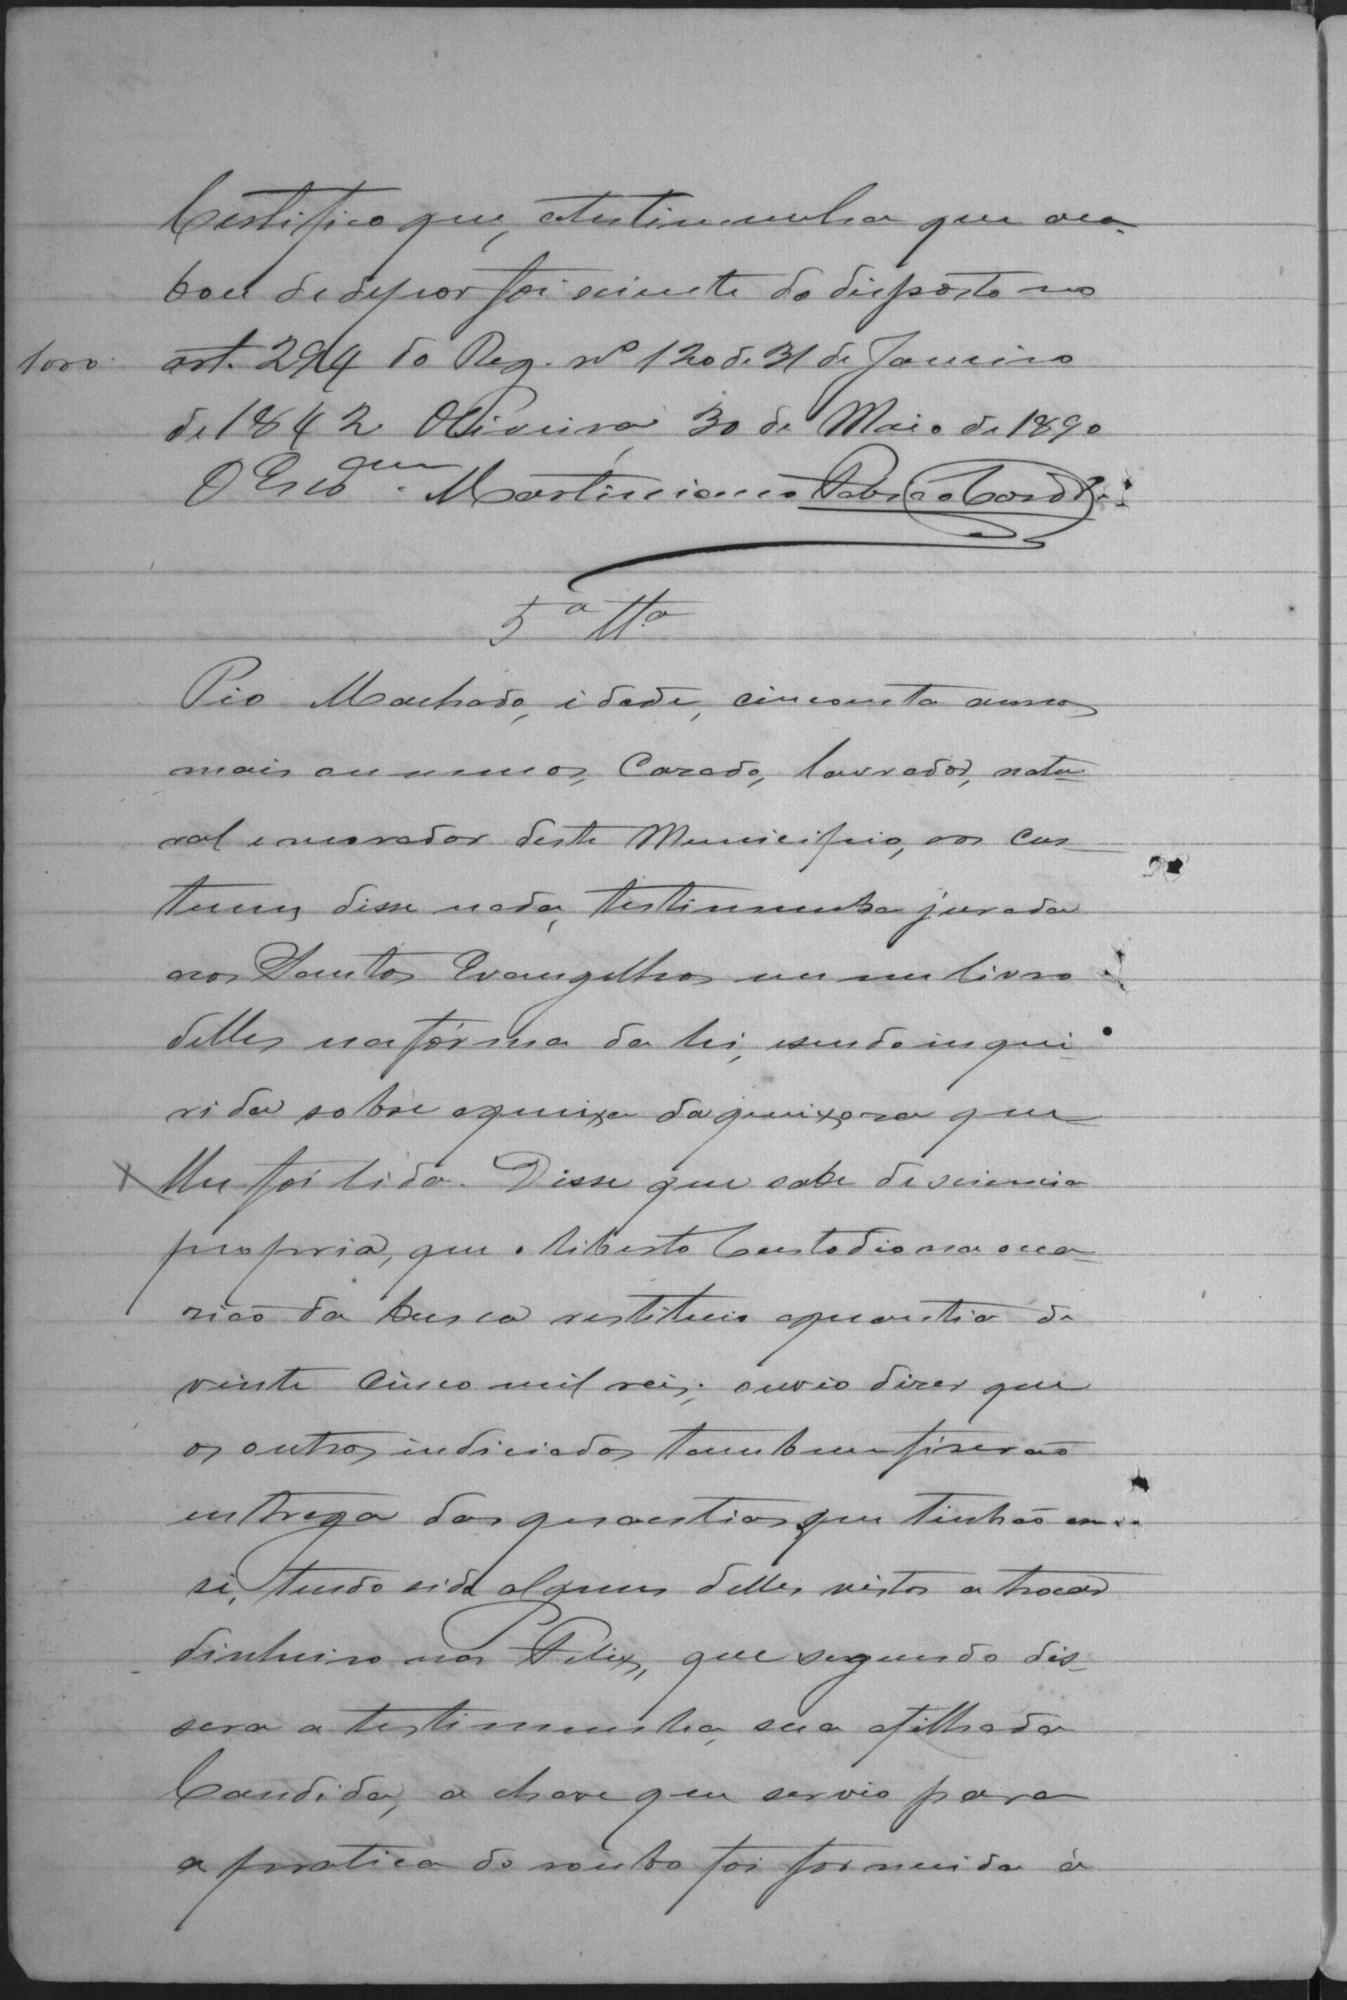 Certifico que, atestimunha que aca-
bou de depor foi sciente do disposto no
1000 art. 294 do Reg. nº 120 de 31 de Janeiro
de 1842 Oliveira, 30 de Maio de 1890
O Escm que Martiniano
5ª Ttª
Pio Machado, idade, cincoenta annos
mais ou menos, Cazado, lavrador, natu-
ral e morador deste Municipio, aos cus-
tumes disse nada, testimunha jurada
aos Santos Evangelhos em um livro
delles na fórma da lei, esendo inqui-
rida sobre aqueixa da queixosa que
lhe foi lida. Disse que sabe de sciencia
propria, que o liberto Custodio na occa-
zião da busca restituio aquantia de
vinte cinco mil reis; ouvio dizer que
os outros indiciados tambem fizerão
entrega das quantias que tinhão em
si, tendo sido alguns delles vistos a trocar
dinheiro nos Felix, que segundo dis-
sera a testimunha, sua afilhada
Candida, a chave que servio para
a pratica do roubo foi fornecida á